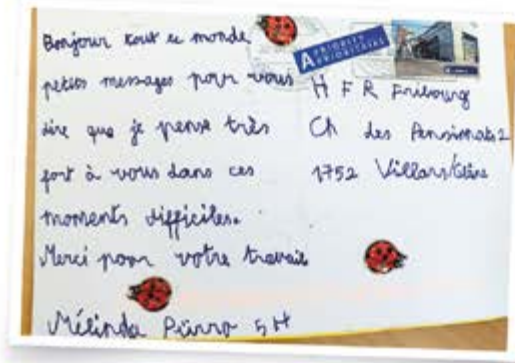 Bonjour tout le monde
petits messages pour vous
dire que je pense très
fort à vous dans ces
moments difficiles.
Merci pour votre travail
Mélinda Pürro 5H
A PRIORITY
PRIORITAIRE
H F R Fribourg
Ch des Pensionats 2
1752 Villars/Glâne